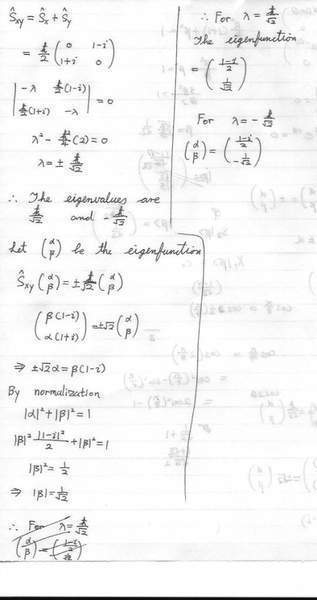 Ŝxy = Ŝx + Ŝy
= ħ/2 ( 0 1-i
1+i 0 )
| -λ ħ/2(1-i)
ħ/2(1+i) -λ | = 0
λ² - ħ²/4(2) = 0
λ = ± ħ/√2
∴ The eigenvalues are
ħ/√2 and -ħ/√2
Let (α β) be the eigenfunction
Ŝxy (α β) = ± ħ/√2 (α β)
( β(1-i)
α(1+i) ) = ±√2 (α β)
⇒ ±√2 α = β(1-i)
By normalization
|α|² + |β|² = 1
|β|² |1-i|²/2 + |β|² = 1
|β|² = 1/2
⇒ |β| = 1/√2
∴ For λ = ħ/√2
(α β) = ( 1-i/2 1/√2 )
∴ For λ = ħ/√2
The eigenfunction
= ( 1-i/2
1/√2 )
For λ = -ħ/√2
(α β) = ( 1-i/2
-1/√2 )